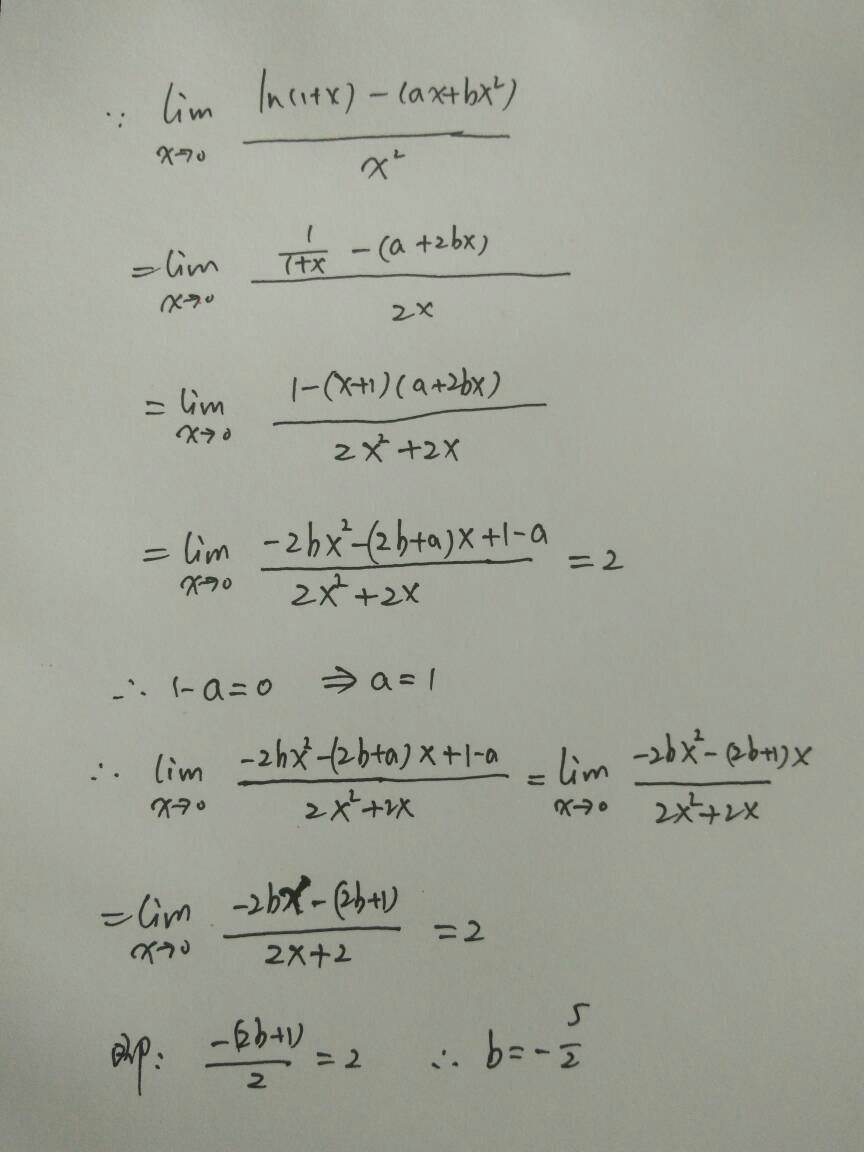 ∵ lim x→0 (ln(1+x) - (ax+bx²)) / x²
= lim x→0 (1/(1+x) - (a+2bx)) / 2x
= lim x→0 (1-(x+1)(a+2bx)) / (2x²+2x)
= lim x→0 (-2bx²-(2b+a)x+1-a) / (2x²+2x) = 2
∴ 1-a=0 ⇒ a=1
∴ lim x→0 (-2bx²-(2b+a)x+1-a) / (2x²+2x) = lim x→0 (-2bx²-(2b+1)x) / (2x²+2x)
= lim x→0 (-2bx-(2b+1)) / (2x+2) = 2
即: -(2b+1)/2 = 2 ∴ b=-5/2